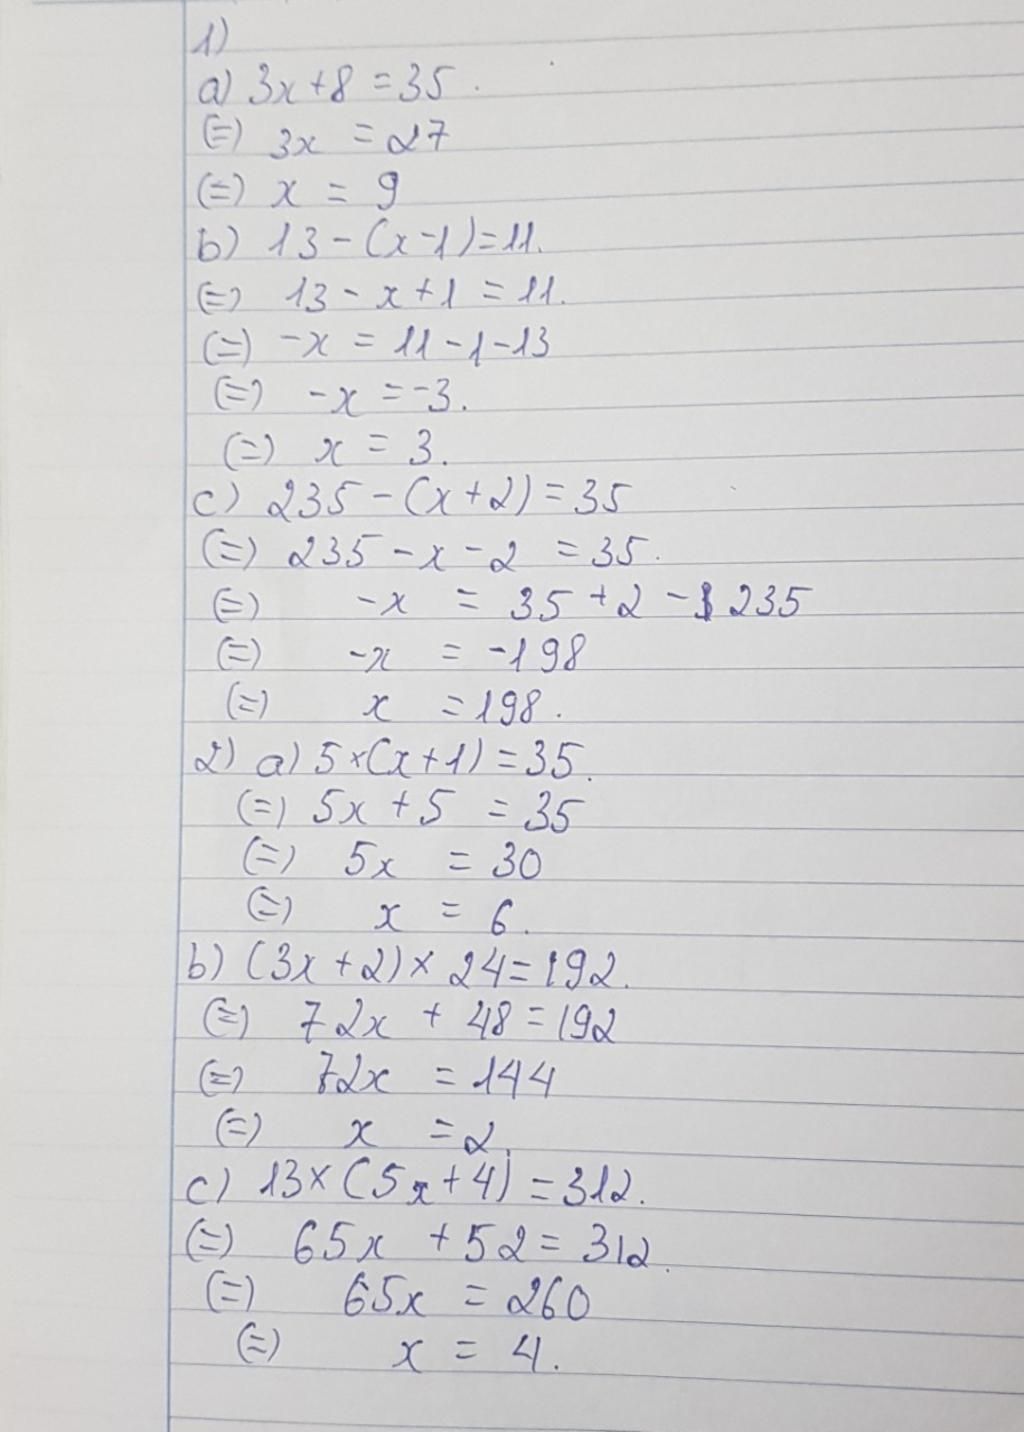 1)
a) 3x+8 = 35.
(=) 3x = 27
(=) x = 9
b) 13-(x-1)=11.
(=) 13-x+1 = 11.
(=) -x = 11-1-13
(=) -x = -3.
(=) x = 3.
c) 235-(x+2)=35
(=) 235-x-2 = 35.
(=) -x = 35+2-235
(=) -x = -198
(=) x = 198.
2) a) 5×(x+1)=35.
(=) 5x+5 = 35
(=) 5x = 30
(=) x = 6.
b) (3x+2)×24=192.
(=) 72x + 48 = 192
(=) 72x = 144
(=) x = 2.
c) 13×(5x+4)=312.
(=) 65x + 52 = 312.
(=) 65x = 260
(=) x = 4.